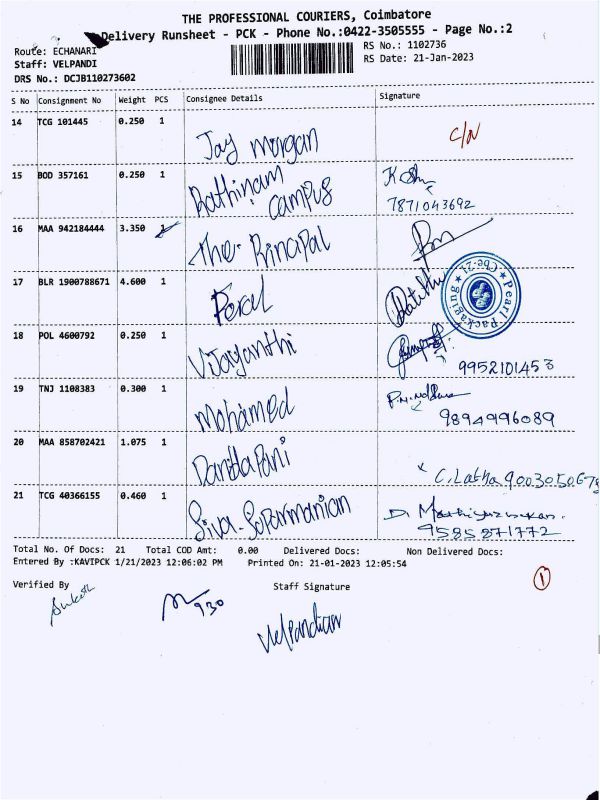 THE PROFESSIONAL COURIERS, Coimbatore
Delivery Runsheet - PCK - Phone No.:0422-3505555 - Page No.:2
Route: ECHANARI
RS No.: 1102736
Staff: VELPANDI
RS Date: 21-Jan-2023
DRS No.: DCJB110273602
S No Consignment No Weight PCS Consignee Details Signature
14 TCG 101445 0.250 1 Jay morgan C/N
15 BOD 357161 0.250 1 Rathinam campus
7871043692
16 MAA 942184444 3.350 1 The Rinapal
17 BLR 1900788671 4.600 1 Peral
Pearl Packaging Cbe-21
18 POL 4600792 0.250 1 Vijayanthi 9952101453
19 TNJ 1108383 0.300 1 Mohamed
9894996089
20 MAA 858702421 1.075 1 Dandapani C. Latha 900305067
21 TCG 40366155 0.460 1 Siva
9585871772
Total No. Of Docs: 21 Total COD Amt: 0.00 Delivered Docs: Non Delivered Docs:
Entered By :KAVIPCK 1/21/2023 12:06:02 PM Printed On: 21-01-2023 12:05:54
1
Verified By Staff Signature
930
Velpandian